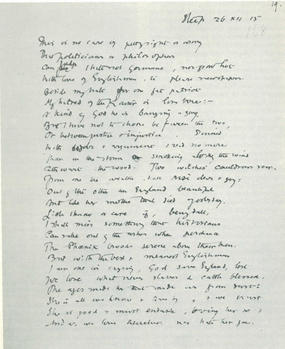 19.
Steep 26 XII 15
This is no case of petty right or wrong
That politicians or philosophers
Can judge. I hate not Germans, nor grow hot
With love of Englishmen, to please newspapers.
Beside my hate for one fat patriot
My hatred of the Kaiser is love true:-
A kind of God he is, banging a gong.
But I have not to choose between the two,
Or between justice & injustice. Dinned
With & argument I read no more
Than in the storm smoking along the wind
Athwart the wood. Two witches' cauldrons roar.
From one the weather shall rise clear & gay;
Out of the other an England beautiful
And like her mother that died yesterday.
Little I know or care if, being dull,
I shall miss something that historians
Can rake out of the ashes when perchance
The Phoenix broods serene above their ken.
But with the best & meanest Englishmen
I am one in crying, God save England, lest
We lose what never slaves & cattle blessed.
The ages made her that made us from dust:
She is all we know & live by, & we trust
She is good & must endure, loving her so:
And as we love ourselves we hate her foe.